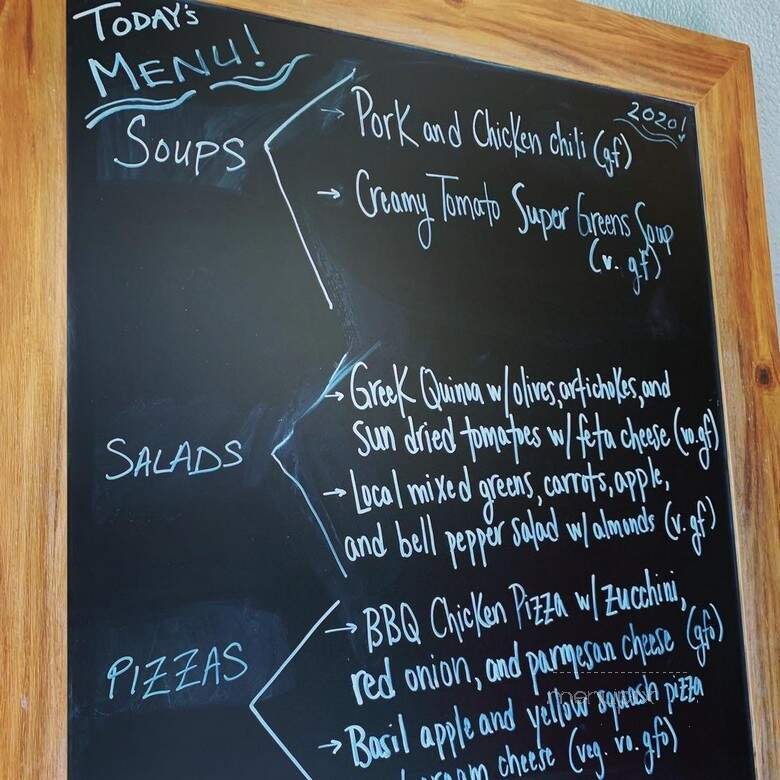 TODAY'S
MENU!
2020!
SOUPS
→ Pork and Chicken chili (gf)
→ Creamy Tomato Super Greens Soup
(v. gf)
SALADS
→ Greek Quinoa w/ olives, artichokes, and
Sun dried tomatoes w/ feta cheese (vo. gf)
→ Local mixed greens, carrots, apple,
and bell pepper salad w/ almonds (v. gf)
PIZZAS
→ BBQ Chicken Pizza w/ zucchini,
red onion, and parmesan cheese (gfo)
→ Basil apple and yellow squash pizza
cream cheese (veg. vo. gfo)